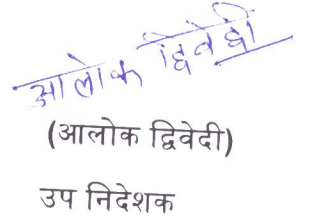 आलोक द्विवेदी
(आलोक द्विवेदी)
उप निदेशक